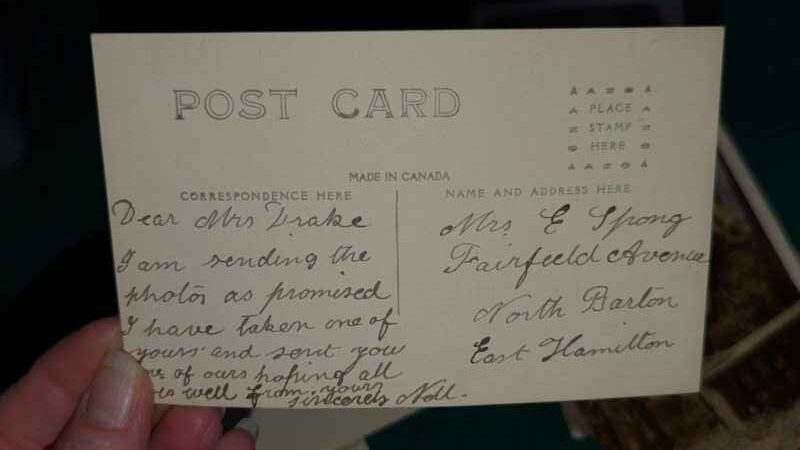 POST CARD
PLACE
STAMP
HERE
MADE IN CANADA
CORRESPONDENCE HERE
Dear Mrs Drake
I am sending the
photos as promised
I have taken one of
yours and sent you
of ours hoping all
is well from yours
sincerely Nell.
NAME AND ADDRESS HERE
Mrs E Spong
Fairfield Avenue
North Barton
East Hamilton